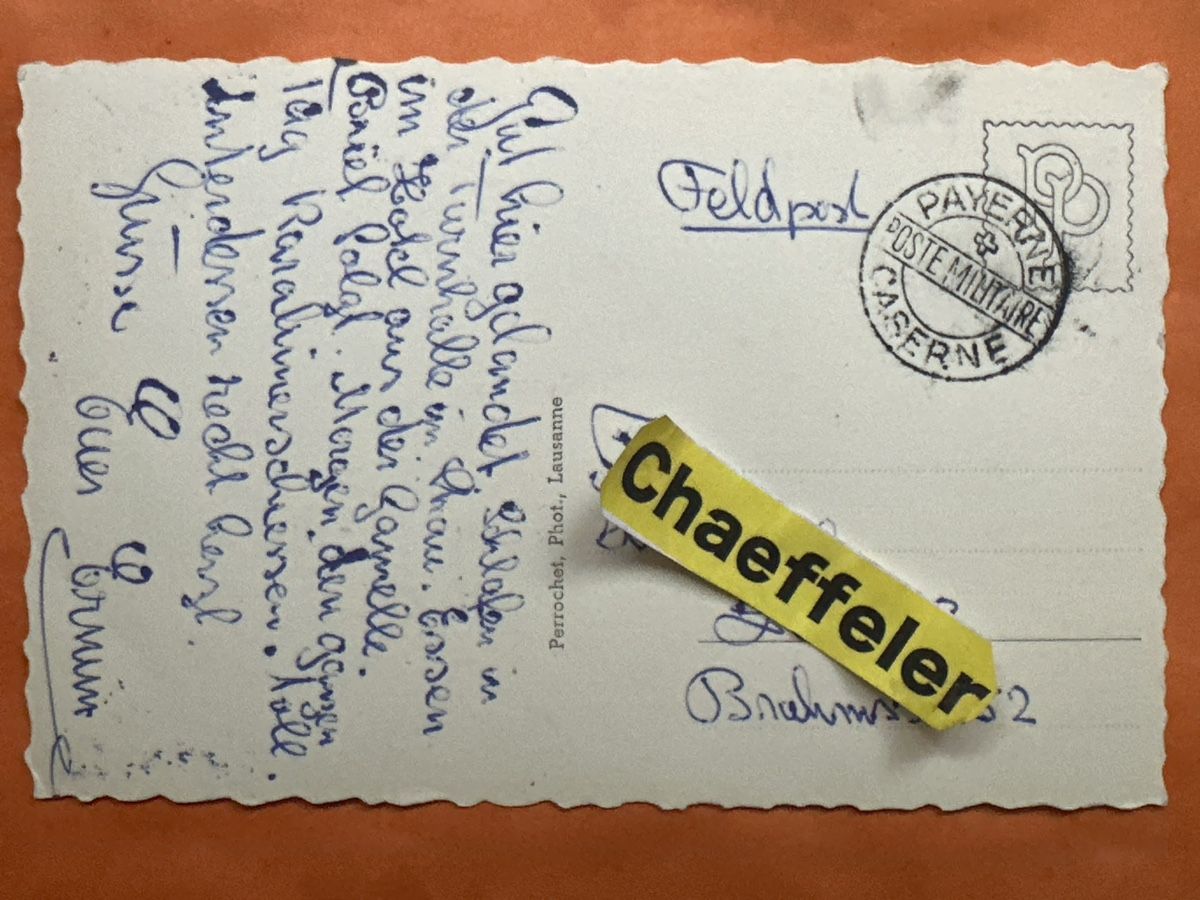 Gut hier gelandet. Schlafen in
der Turnhalle im Stroh. Essen
im Hotel aus der Gamelle.
folgt. Morgen den ganzen
Tag Karabinerschiessen. Toll.
Unterdessen recht herzl.
Grüsse
Euer Erwin
Perrochet, Phot., Lausanne
Feldpost
PAYERNE
POSTE MILITAIRE
CASERNE
Chaeffeler
52